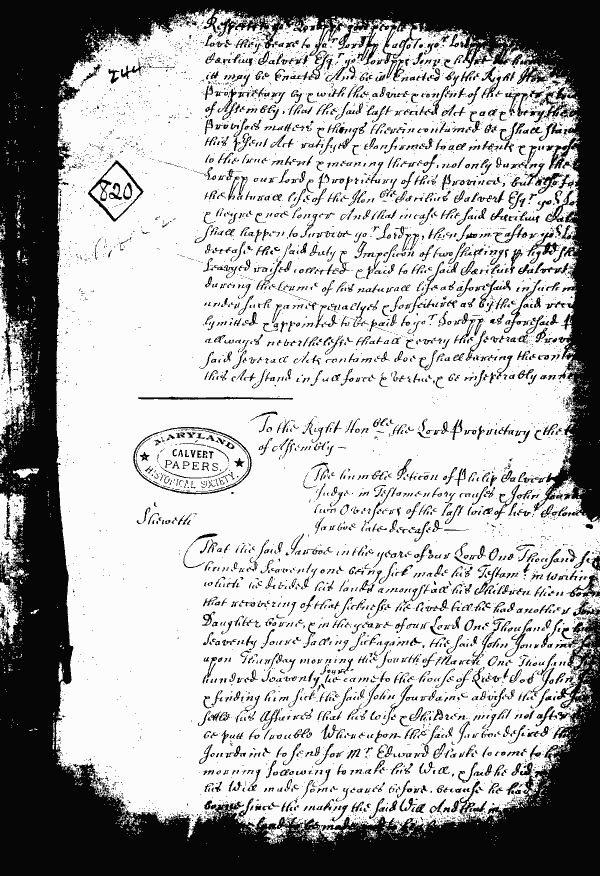 244
820
love they beare to yo.r Lordpp & also to yo.r Lordpp
Caecilius Calvert Esq.r yo.r Lordpps Sonn &
itt may be Enacted And be it Enacted by the Right Hon
Proprietary by & with the advice & consent of the upper &
of Assembly, that the said last recited Act & all & every the
Provisoes matters & things therein contained be & shall stand
this p̃sent Act ratifyed & confirmed to all intents & purpose
to the true intent & meaning thereof, not only dureing the
Lordpp our Lord & Proprietary of this Province, but also for
the naturall life of the Hon.ble Caecilius Calvert Esq.r yo.r
& heyre & noe longer And that in case the said Caecilius
shall happen to survive yo.r Lordpp, then from & after yo.r
decease the said duty & Imposicon of two shillings p hgdd
Leavyed raised collected & paid to the said Caecilius Calvert
dureing the terme of his naturall life as aforesaid in such
under such paines penaltyes & forfeitures as by the said
lymitted & appointed to be paid to yo.r Lordpp as aforesaid
allwayes neverthelesse that all & every the severall
said severall Acts contained doe & shall dureing the
this Act stand in full force & vertue, & be inseperably
To the Right Hon.ble the Lord Proprietary & the
of Assembly —
MARYLAND
CALVERT
PAPERS.
HISTORICAL SOCIETY.
The humble Peticon of Philip Calvert
Judge in Testamentory causes & John
two Overseers of the last will of Liev.t
Jarboe late deceased —
Sheweth
That the said Jarboe in the yeare of our Lord One Thousand six
hundred Seaventy one being sick made his Testam.t in writing
which he divided his lands amongst all his Children then borne
that recovering of that sicknesse he lived till he had another
Daughter borne, & in the yeare of our Lord One Thousand six
Seaventy foure falling sick againe, the said John Jourdaine
upon Thursday morning the fourth of March One Thousand
hundred Seaventy foure he came to the house of Liev.t Col. John
& finding him sick the said John Jourdaine advised the said
settle his Affaires that his wife & Children might not after
be putt to trouble Whereupon the said Jarboe desired the
Jourdaine to send for M.r Edward Clarke to come to
morning following to make his Will, & said he did
his Will made some yeares before, because he had
borne since the making the said Will And that